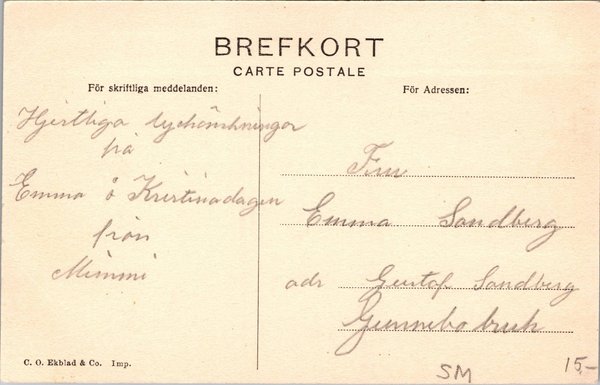 BREFKORT
CARTE POSTALE
För skriftliga meddelanden:
För Adressen:
Hjertliga lyckönskningar
på
Emma o Kristinadagen
från
Mimmi
Fru
Emma Sandberg
adr Gustaf Sandberg
Gunnebo bruk
C. O. Ekblad & Co. Imp.
SM
15-